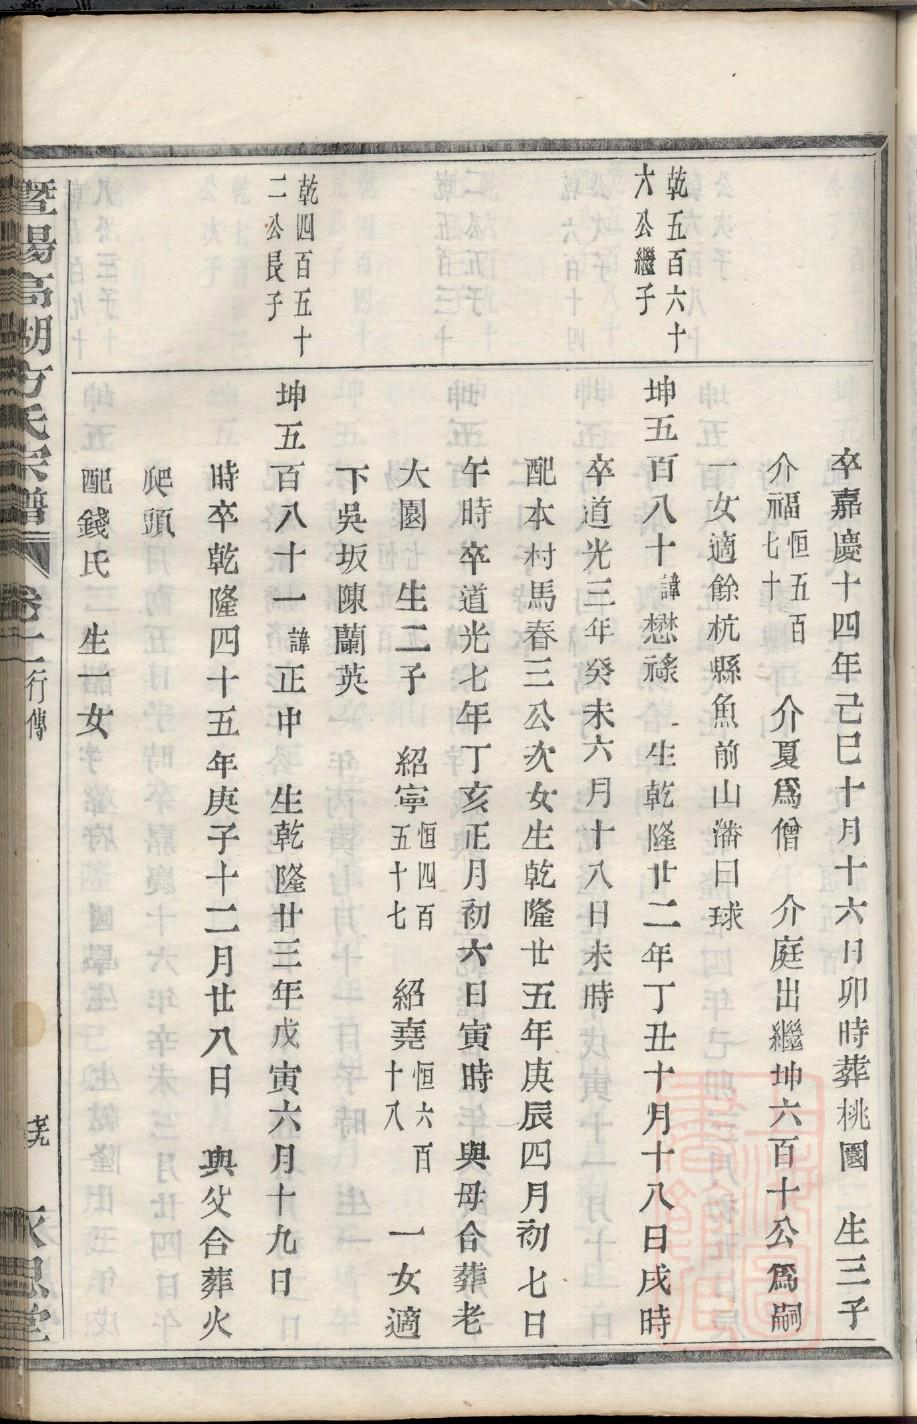 卒嘉慶十四年己巳十月十六日卯時葬桃園 生三子
介福恒五百七十 介夏爲僧 介庭出繼坤六百十公爲嗣
一女適餘杭縣魚前山潘曰球
乾五百六十六公繼子
坤五百八十諱懋祿 生乾隆廿二年丁丑十月十八日戌時
卒道光三年癸未六月十八日未時
配本村馬春三公次女生乾隆廿五年庚辰四月初七日
午時卒道光七年丁亥正月初六日寅時 與母合葬老
大園 生二子 紹寧恒四百五十七 紹堯恒六百十八 一女適
下吳坂陳蘭英
乾四百五十二公長子
坤五百八十一諱正中 生乾隆廿三年戊寅六月十九日
時卒乾隆四十五年庚子十二月廿八日 與父合葬火
爬頭
配錢氏 生一女
暨陽高湖方氏宗譜 卷十一 行傳